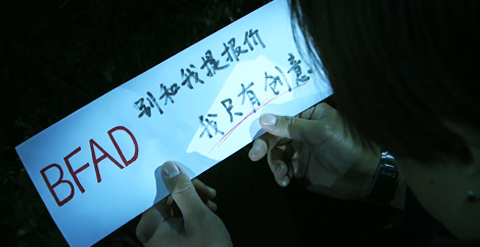 BFAD
别和我提报价
我只有创意